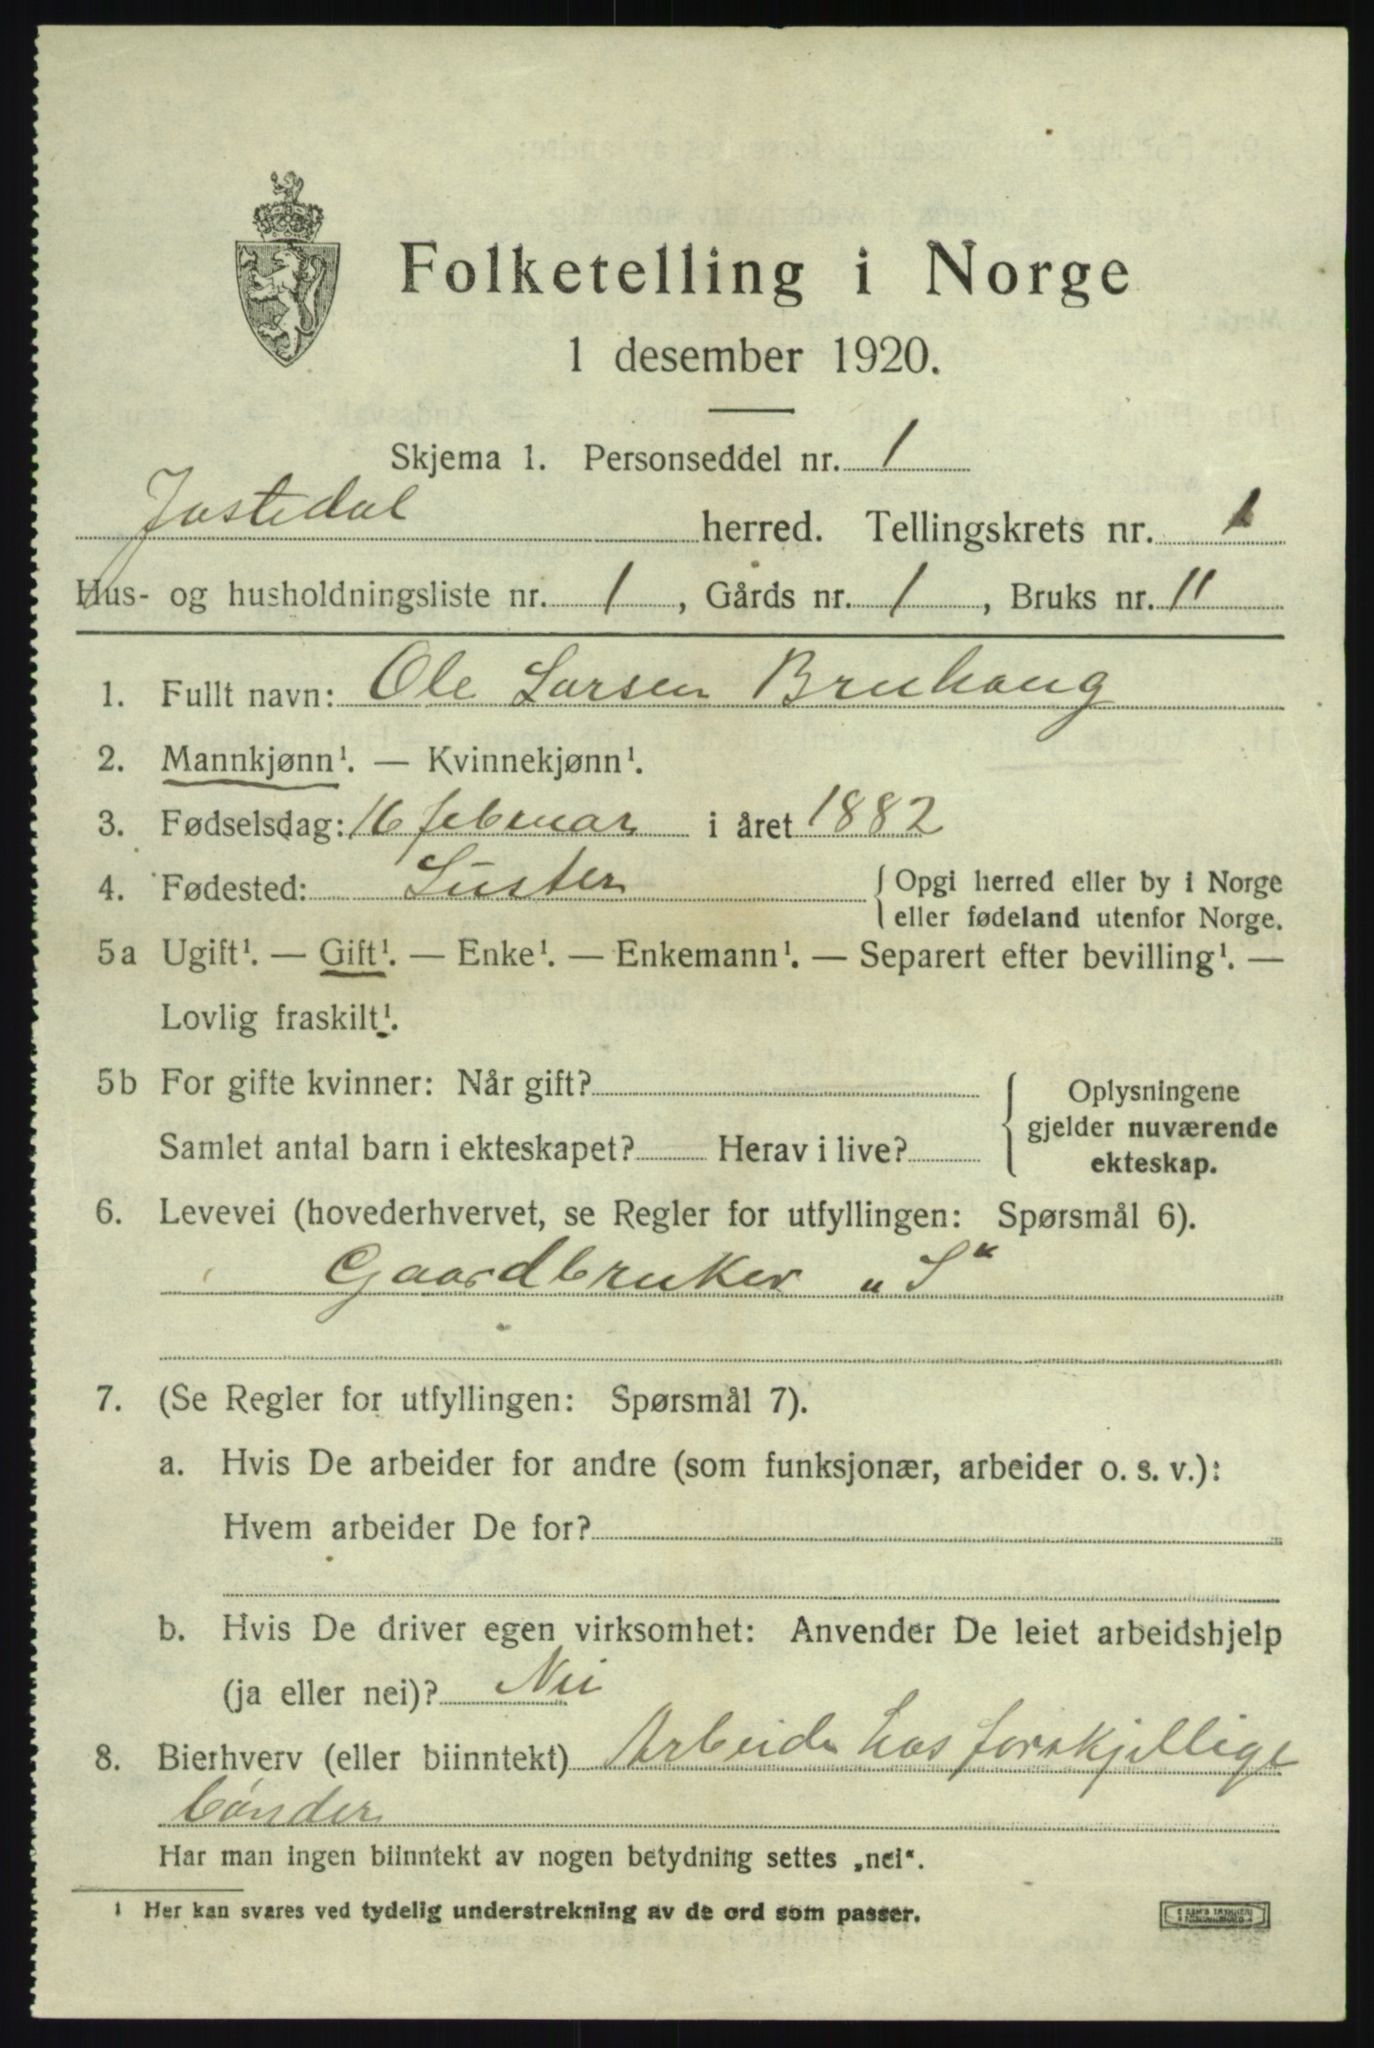 Folketelling i Norge
1 desember 1920.
Skjema 1. Personseddel nr. 1
Jostedal herred. Tellingskrets nr. 1
Hus- og husholdningsliste nr. 1, Gårds nr. 1, Bruks nr. 11
1. Fullt navn: Ole Larsen Bruhaug
2. Mannkjønn¹. — Kvinnekjønn¹.
3. Fødselsdag: 16 februar i året 1882
4. Fødested: Luster { Opgi herred eller by i Norge
eller fødeland utenfor Norge.
5a Ugift¹. — Gift¹. — Enke¹. — Enkemann¹. — Separert efter bevilling¹. —
Lovlig fraskilt¹.
5b For gifte kvinner: Når gift? { Oplysningene
gjelder nuværende
Samlet antal barn i ekteskapet? Herav i live? ekteskap.
6. Levevei (hovederhvervet, se Regler for utfyllingen: Spørsmål 6).
Gaardbruker „S“
7. (Se Regler for utfyllingen: Spørsmål 7).
a. Hvis De arbeider for andre (som funksjonær, arbeider o. s. v.):
Hvem arbeider De for?
b. Hvis De driver egen virksomhet: Anvender De leiet arbeidshjelp
(ja eller nei)? Nei
8. Bierhverv (eller biinntekt) Arbeide hos forskjellige
bønder
Har man ingen biinntekt av nogen betydning settes „nei“.
1 Her kan svares ved tydelig understrekning av de ord som passer.